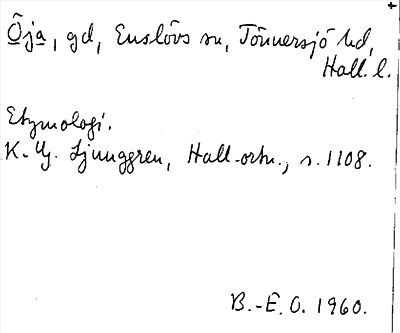 Öja, gd, Enslövs sn, Tönnersjö hd,
Hall. l.
Etymologi.
K. G. Ljunggren, Hall. ortn., s. 1108.
B.-E. O. 1960.